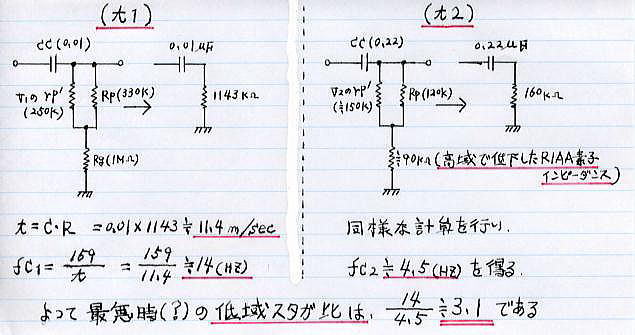 (t1)
CC (0,01)
0,01μF
V1のrp'
(250K)
Rp(330K)
1143KΩ
Rg(1MΩ)
t=C・R =0,01×1143≒11.4 m/sec
fC1= 159/t = 159/11.4 ≒14(HZ)
(t2)
CC(0,22)
0,22μF
V2のrp'
(≒150K)
Rp(120K)
160KΩ
≒90KΩ(高域で低下したRIAA素子
インピーダンス)
同様な計算を行い.
fC2≒4.5(HZ)を得る.
よって 最悪時(?)の 低域スタガ比は, 14/4.5 ≒3,1 である